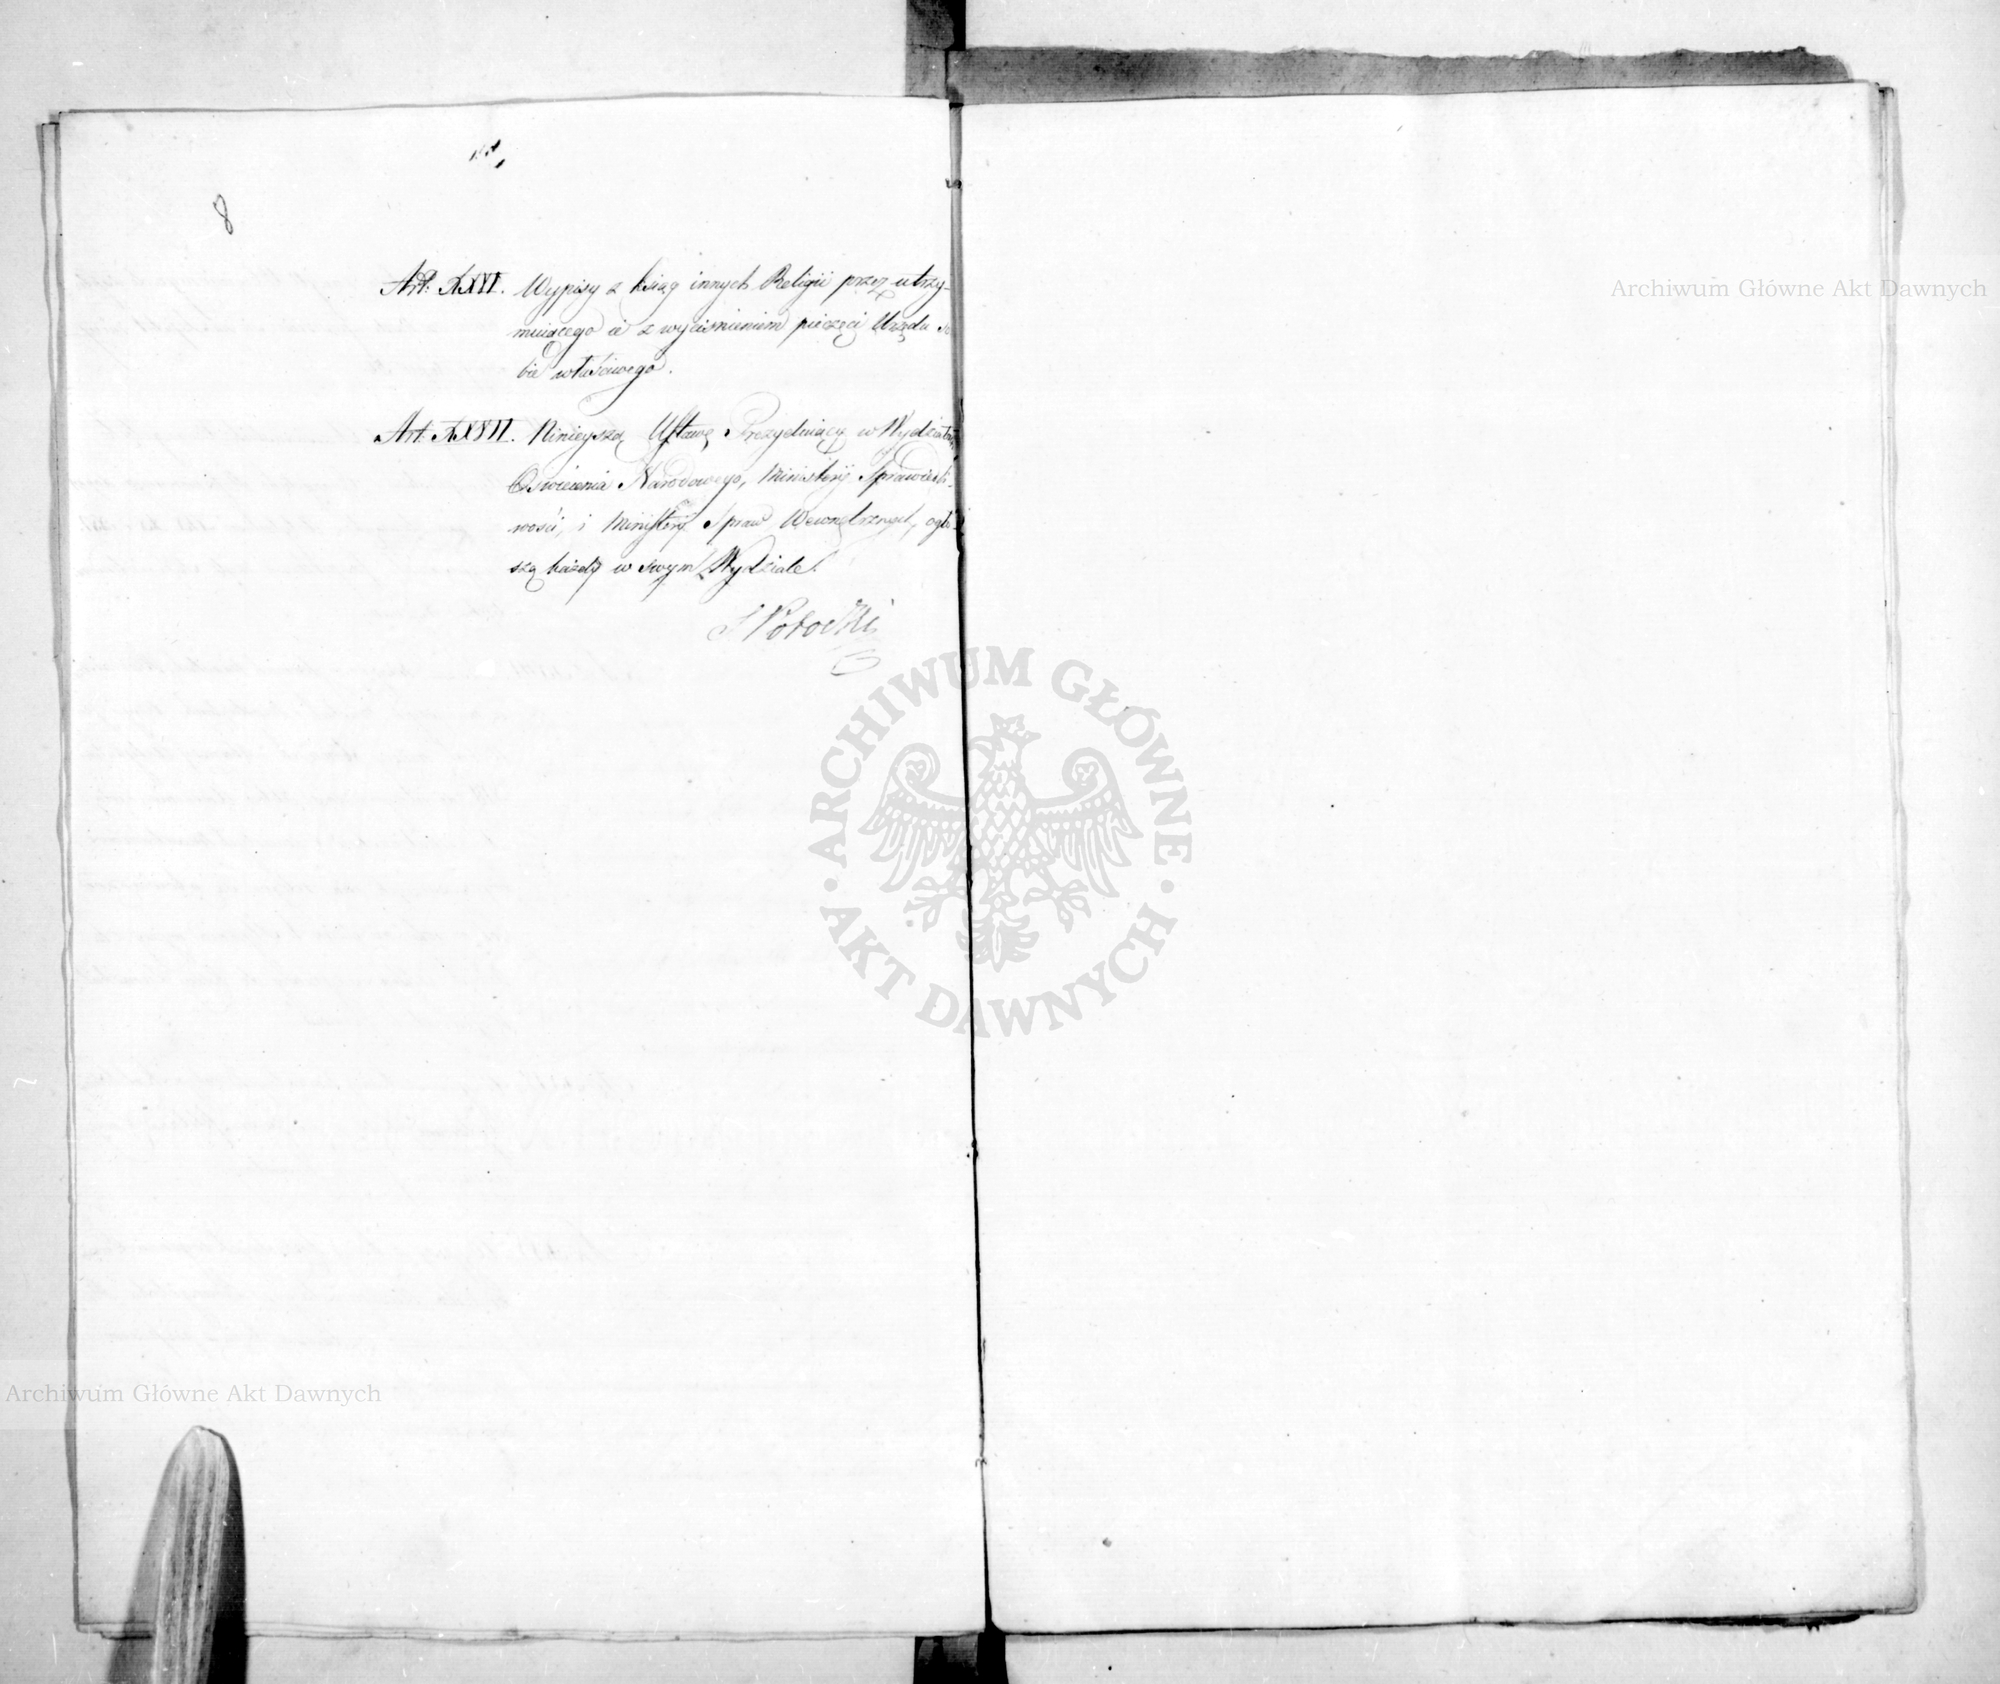 8
Art: XXVI. Wypisy z ksiąg innych Religii przez utrzy-
muiącego ie z wyciśnieniem pieczęci Urzędu so-
bie właściwego.
Art: XXVII. Ninieyszą Ustawę Prezyduiący w Wydziale
Oświecenia Narodowego, Ministery Sprawiedli-
wości, i Ministery Spraw Wewnętrznych, ogło-
szą każdy w swym Wydziale.
S. Potocki
Archiwum Główne Akt Dawnych
ARCHIWUM GŁÓWNE · AKT DAWNYCH ·
Archiwum Główne Akt Dawnych